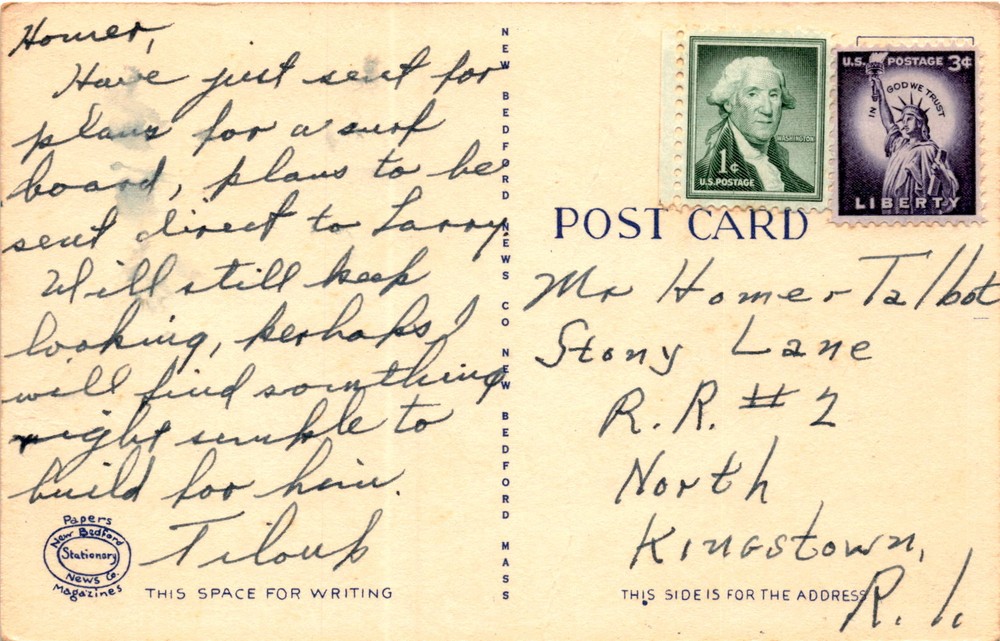 Homer,
Have just sent for
plans for a surf
board, plans to be
sent direct to Larry.
Will still keep
looking, perhaps I
will find somthing
right semple to
build for him.
Tiloup
Papers
New Bedford
Stationary
News Co.
Magazines
THIS SPACE FOR WRITING
NEW BEDFORD NEWS CO NEW BEDFORD MASS
WASHINGTON
1¢
U.S. POSTAGE
U.S. POSTAGE 3¢
IN GOD WE TRUST
LIBERTY
POST CARD
Mr Homer Talbot
Stony Lane
R.R. #2
North
Kingstown,
R.I.
THIS SIDE IS FOR THE ADDRESS